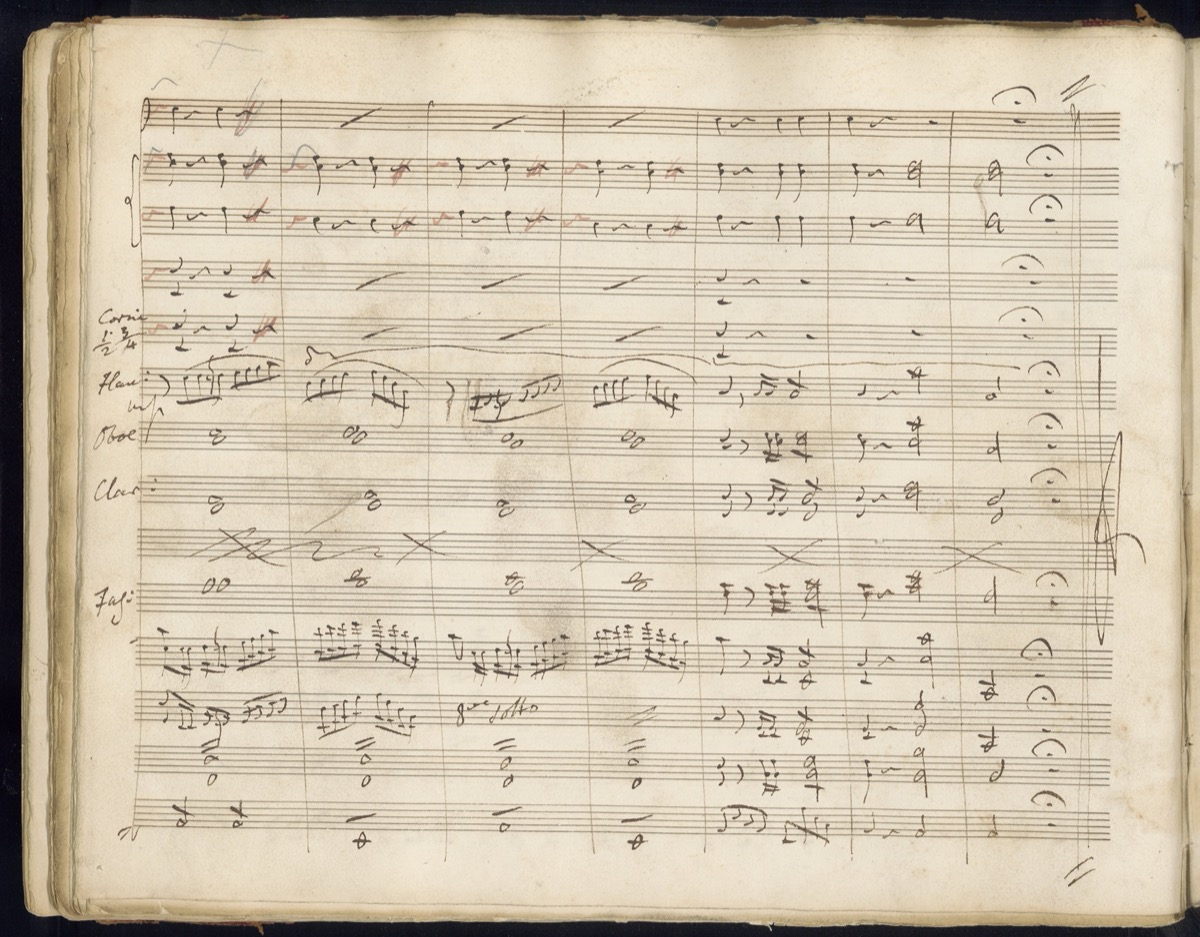 Corni
1. 3
2 4
Flau:
Oboe
Clar:
Fag:
8ve sotto